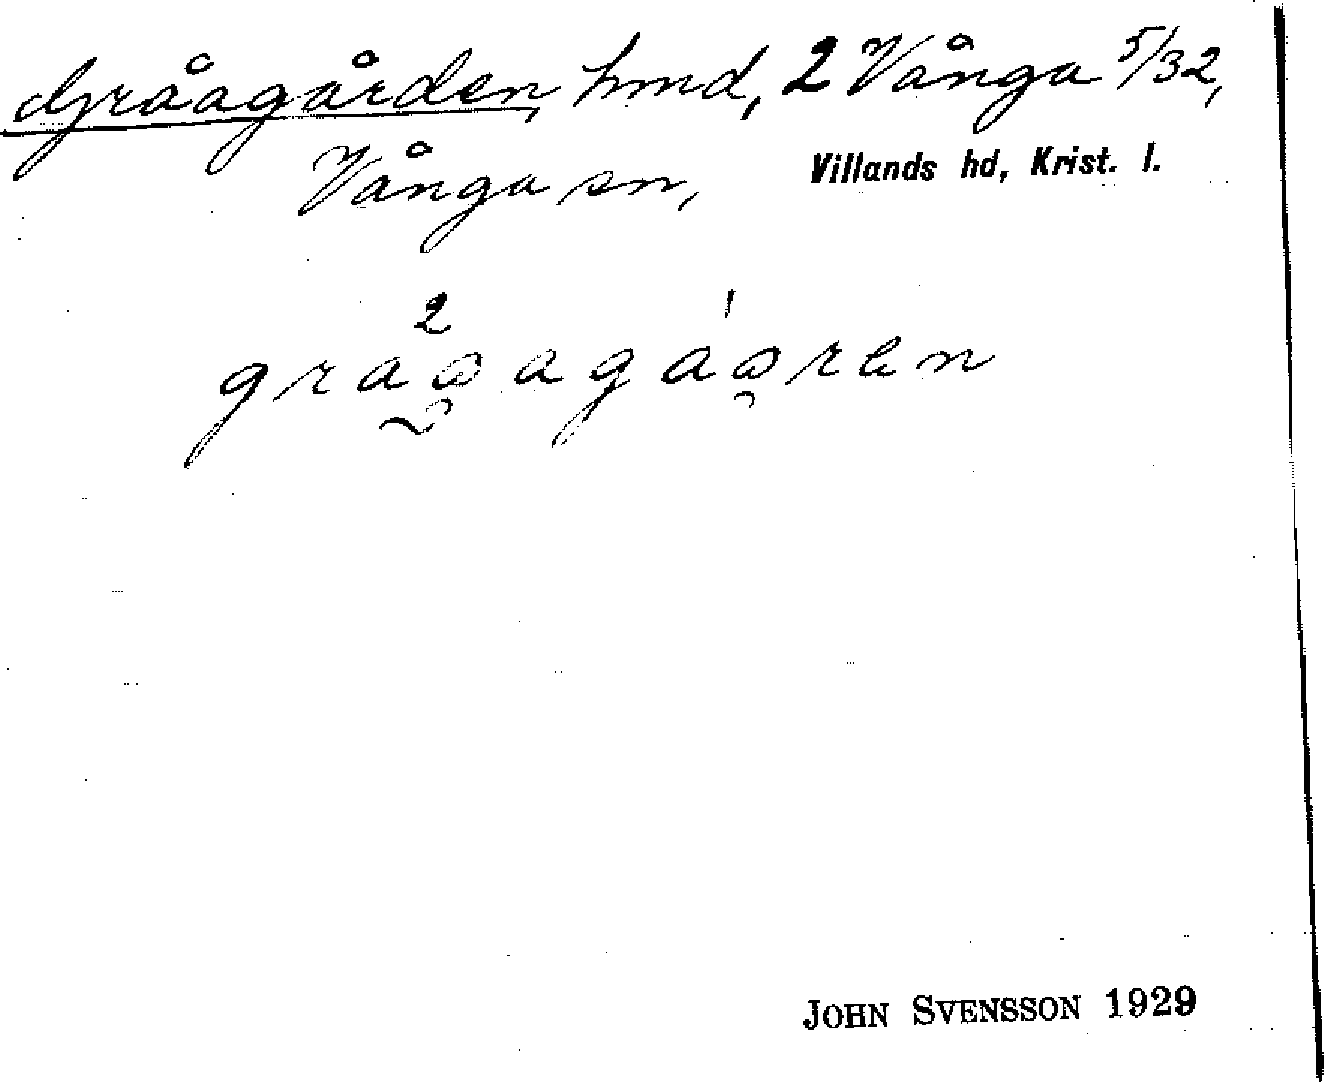 Gråagården, hmd, 2 Vånga 5/32,
Vånga sn, Villands hd, Krist. l.
JOHN SVENSSON 1929